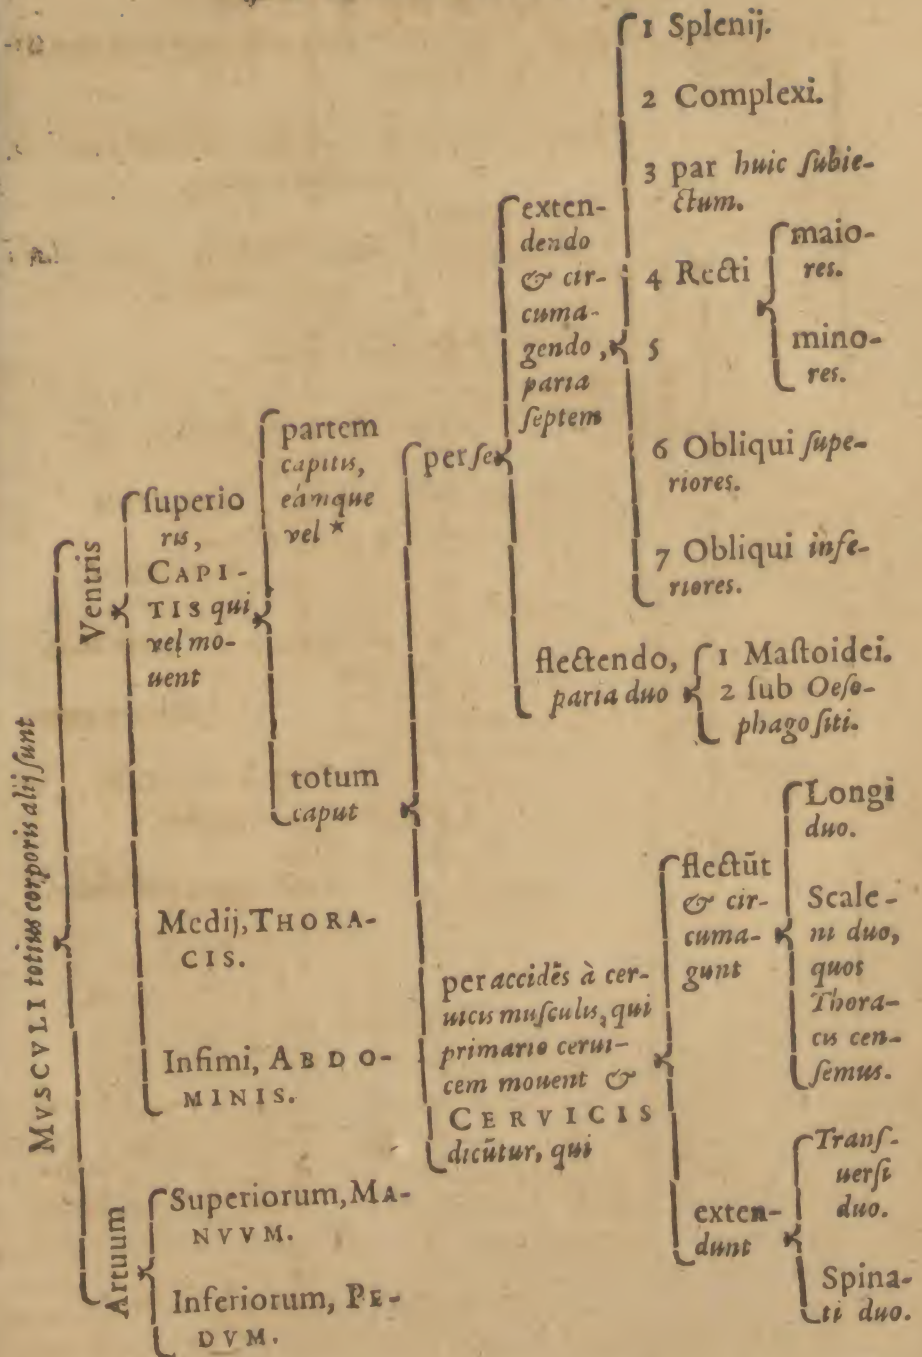 MVSCVLI totius corporis alij sunt
Ventris
superio
ris,
CAPI-
TIS qui
vel mo-
uent
partem
capitis,
eámque
vel *
per se
exten-
dendo
& cir-
cuma-
gendo,
paria
septem
1 Splenij.
2 Complexi.
3 par huic subie-
ctum.
4 Recti
5
maio-
res.
mino-
res.
6 Obliqui supe-
riores.
7 Obliqui infe-
riores.
flectendo,
paria duo
1 Mastoidei.
2 sub Oeso-
phago siti.
totum
caput
per accidēs à cer-
uicis musculis, qui
primario cerui-
cem mouent &
CERVICIS
dicūtur, qui
flectūt
& cir-
cuma-
gunt
Longi
duo.
Scale-
ni duo,
quos
Thora-
cis cen-
semus.
exten-
dunt
Trans-
uersi
duo.
Spina-
ti duo.
Medij, THORA-
CIS.
Infimi, ABDO-
MINIS.
Artuum
Superiorum, MA-
NVVM.
Inferiorum, PE-
DVM.